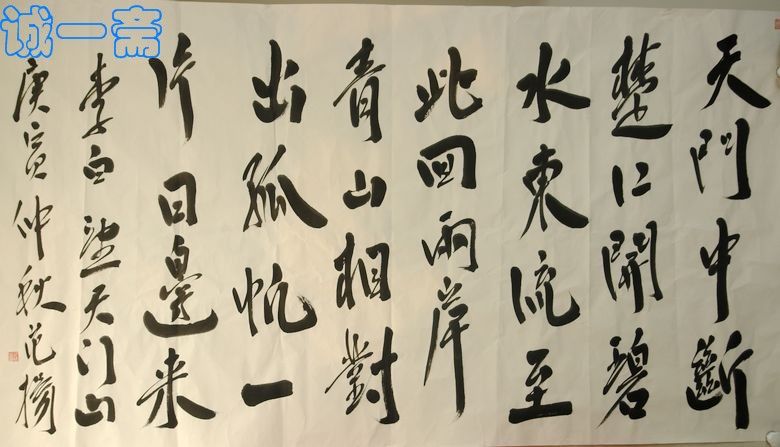 诚一斋
天門中斷
楚江開碧
水東流至
此回兩岸
青山相對
出孤帆一
片日邊来
李白望天门山
庚寅仲秋范